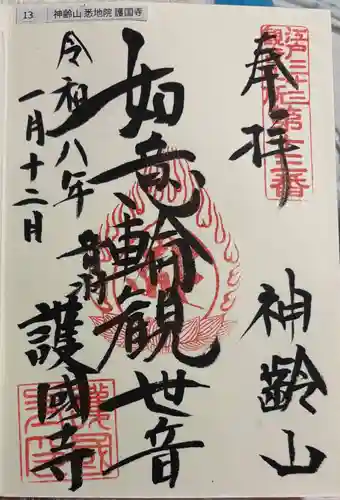 13 神齢山 悉地院 護国寺
江戸三十三
観音札所第十三番
奉拝
神齢山
如意輪観世音
音羽
護國寺
令和八年
一月十二日